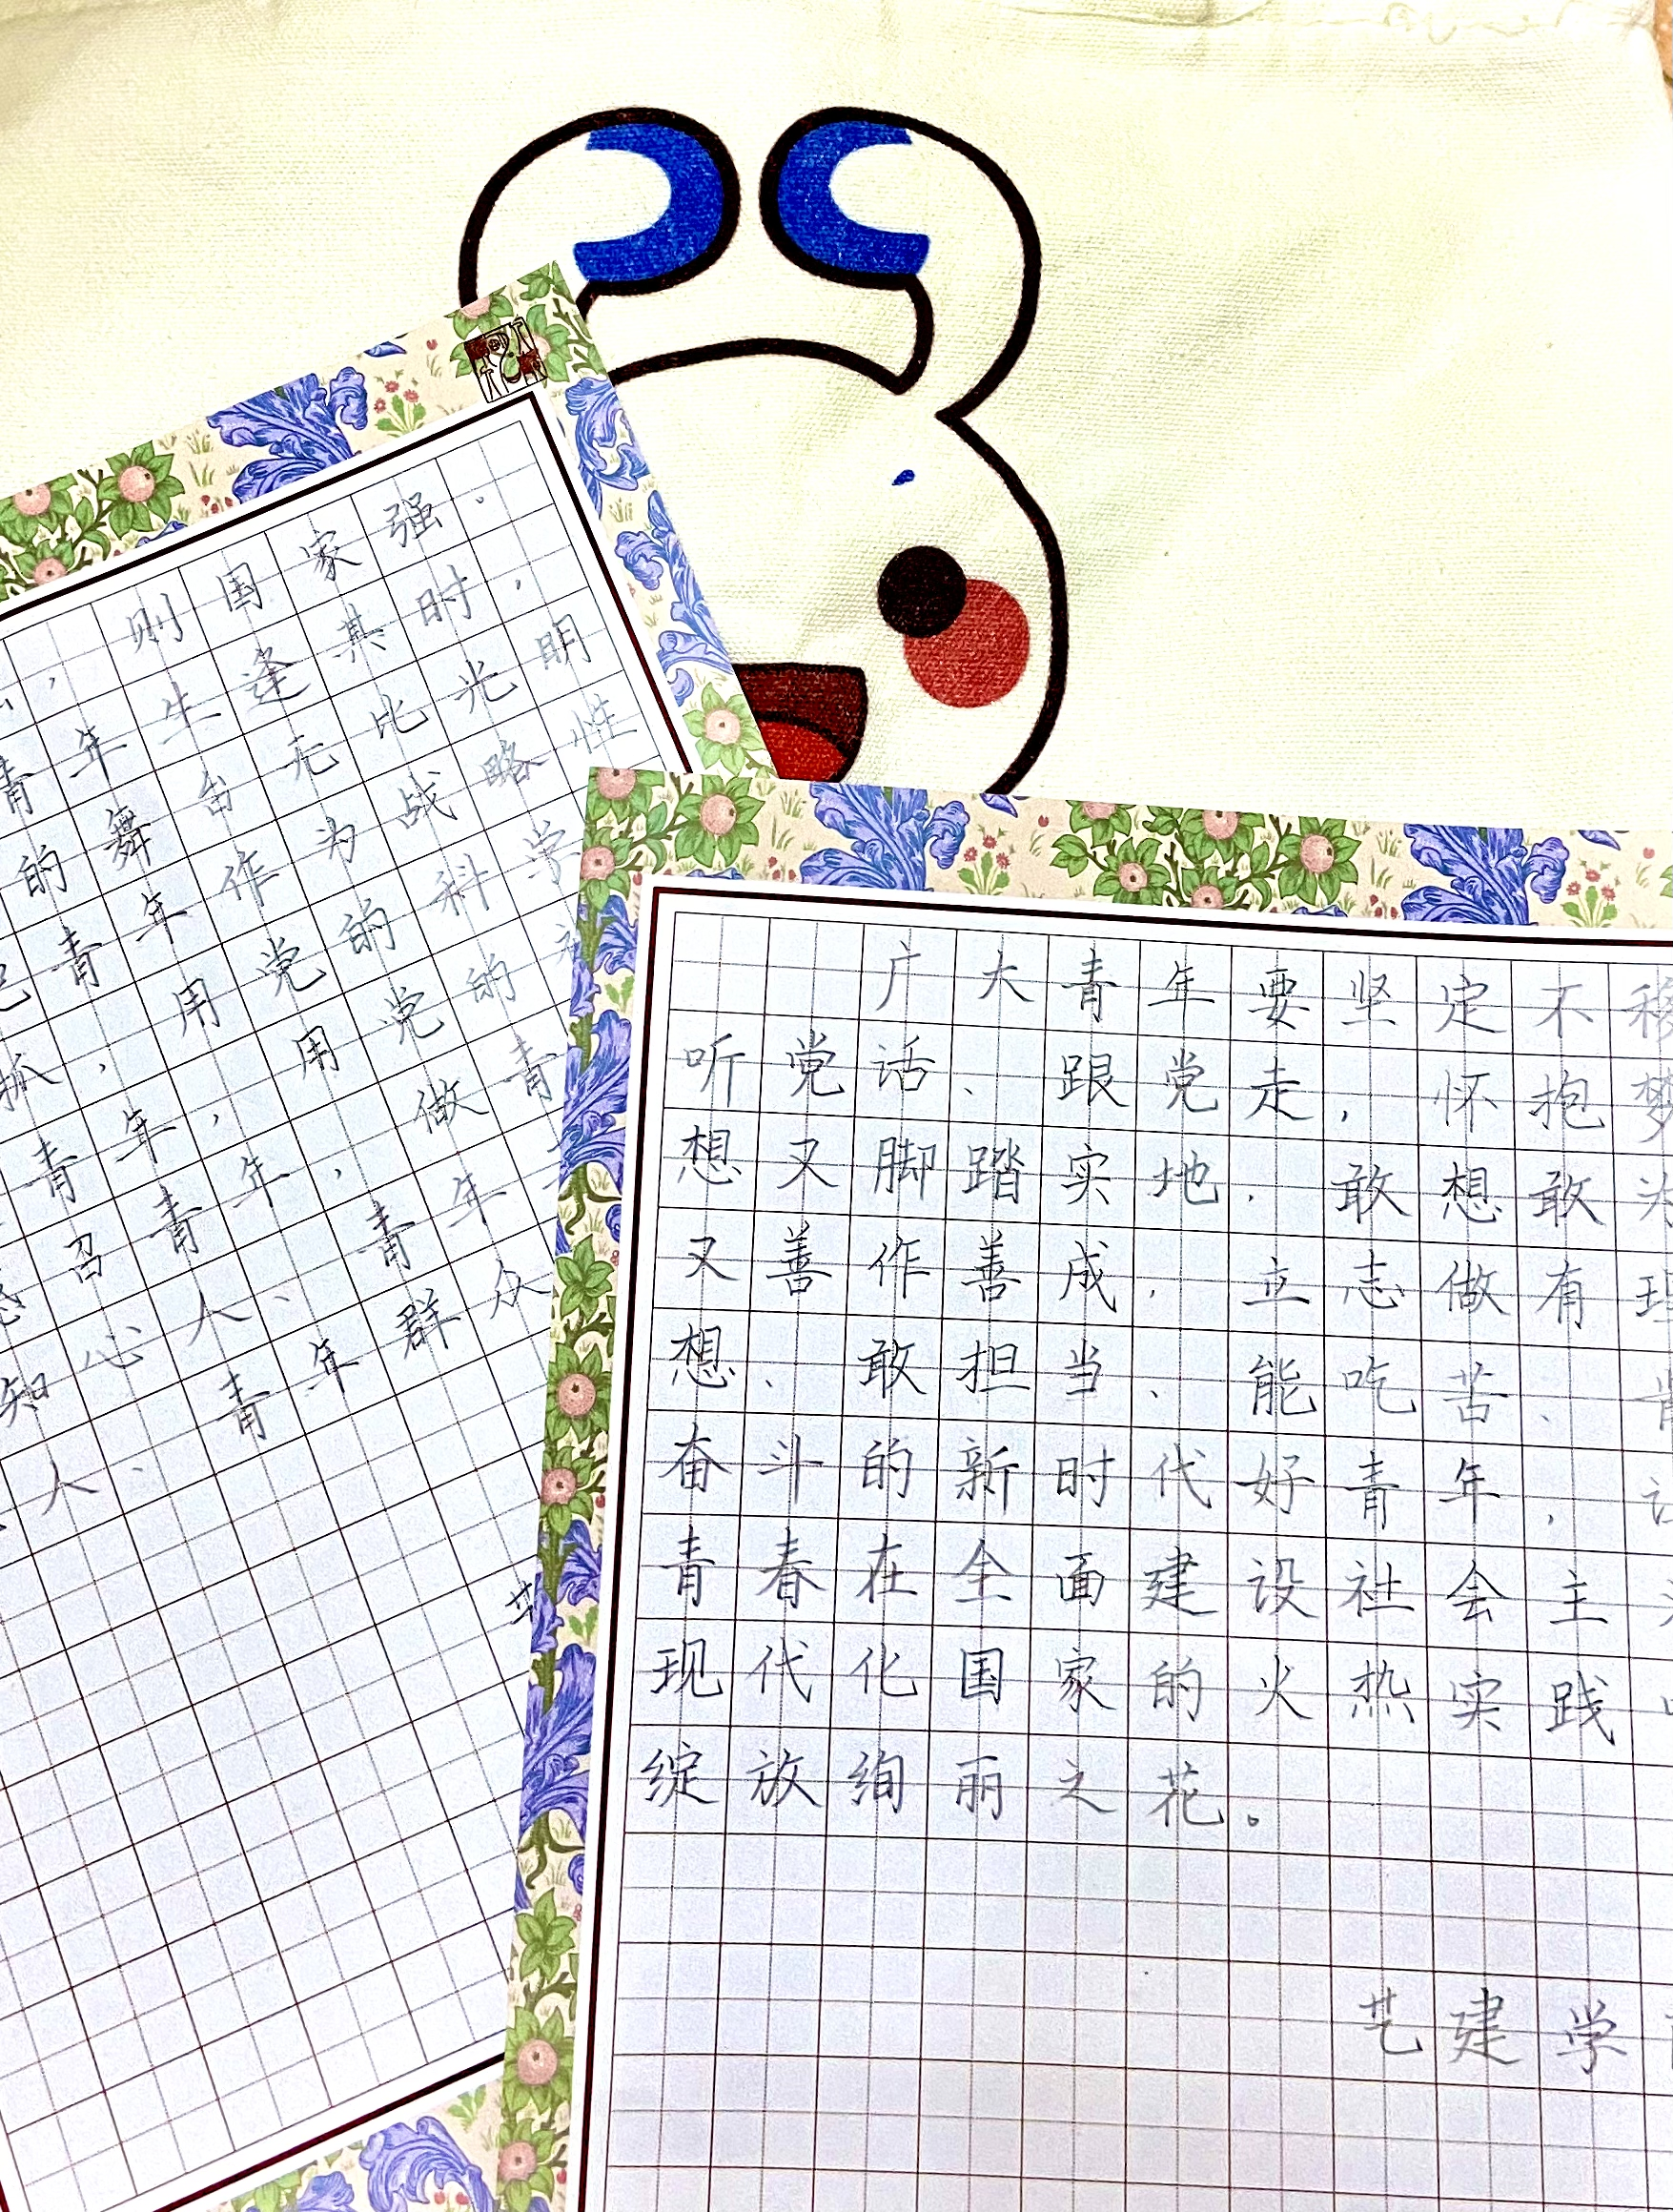 ，则国家强.
青年生逢其时，
的舞台无比光明
青年作为战略性
抓，用党的科学
青年，用党的
召青年，做青
知心人、青年
人、青年群众
艺
广大青年要坚定不移
听党话、跟党走，怀抱梦
想又脚踏实地.敢想敢为
又善作善成，立志做有理
想、敢担当、能吃苦、
奋斗的新时代好青年，
青春在全面建设社会主
现代化国家的火热实践
绽放绚丽之花。
艺建学